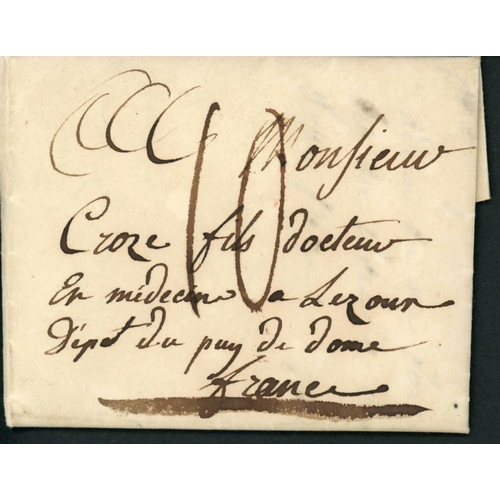 10
Monsieur
Croze fils docteur
En médecine a Lezoux
Dépt du puy de dome
france